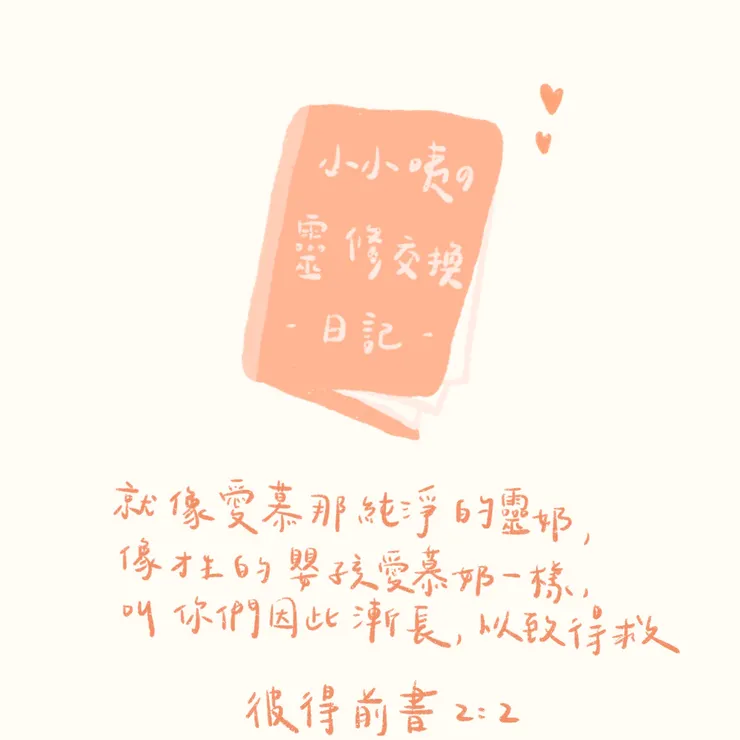 小小咦の
靈修交換
-日記-
就像愛慕那純淨的靈奶,
像才生的嬰孩愛慕奶一樣,
叫你們因此漸長,以致得救
彼得前書2:2